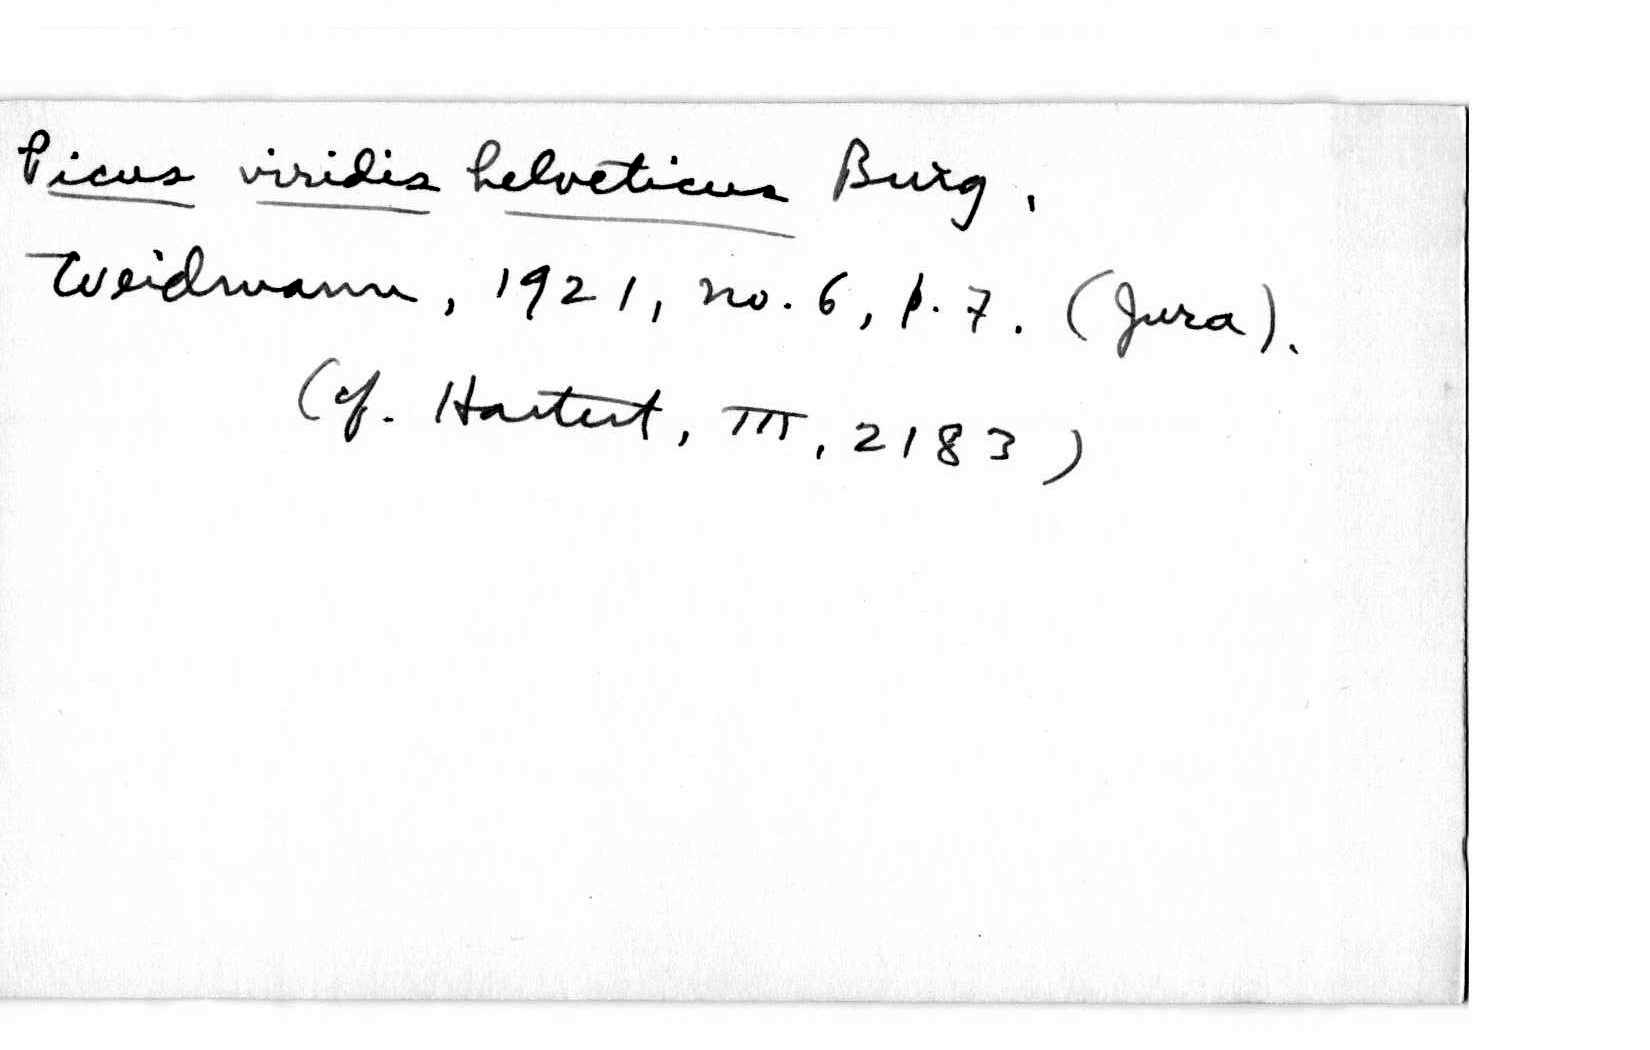 Picus viridis helveticus Burg,
Weidmann, 1921, no. 6, p. 7. (Jura).
(cf. Hartert, III, 2183)